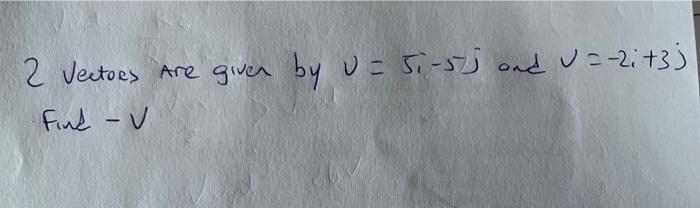 2 Vectors Are given by U = 5i-5j and V = -2i+3j
Find - V